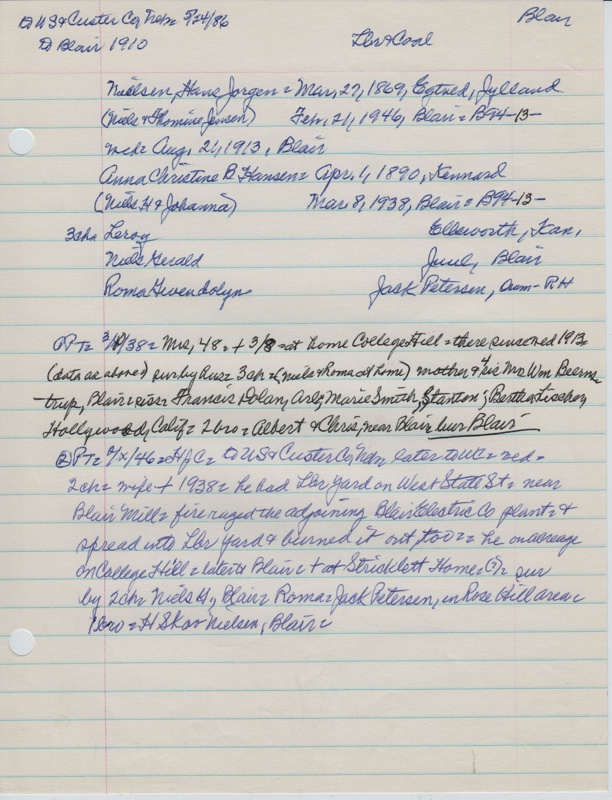 ① US & Custer Co, Nebr 5/24/86
Blair
② Blair 1910
Lbr & Coal
Nielsen, Hans Jorgen = Mar, 27, 1869, Egtved, Jylland
(Niels & Thomine Jensen) Feb, 21, 1946, Blair = B94-13-
mch = Aug, 21, 1913, Blair
Anna Christine B Hansen = Apr, 1, 1890, Kennard
(Niels H & Johanna) Mar, 8, 1938, Blair = B94-13-
3chn Leroy Ellsworth, Kan,
Niels Gerald Blair
Roma Gwendolyn Jack Petersen, Oum-RH
PT = 3/ /38 = Mrs, 48 = + 3/8 = at home College Hill = there since md 1913
(data as above) sur by hus = 3ch = (Niels & Roma at home) mother = Mrs Wm Beerns-
trup, Blair = siss = Francis Dolan, Marie Smith, Stanton; Bertha
Hollywood, Calif = 2bro = Albert & Chris, near Blair bur Blair
PT = /46 = HJC = to US & Custer Co, later to = md =
2ch = wife + 1938 = he had Lbr yard on West State St = near
Blair Mill = fire raged the adjoining Blair Electric Co plant = &
spread into Lbr yard & burned it out, too = he on acreage
on College Hill = later Blair = + at Stricklett Home = (?) = sur
by 2ch = Niels H, Blair = Roma = Jack Petersen, in Rose Hill area =
1bro = H Skov Nielsen, Blair =